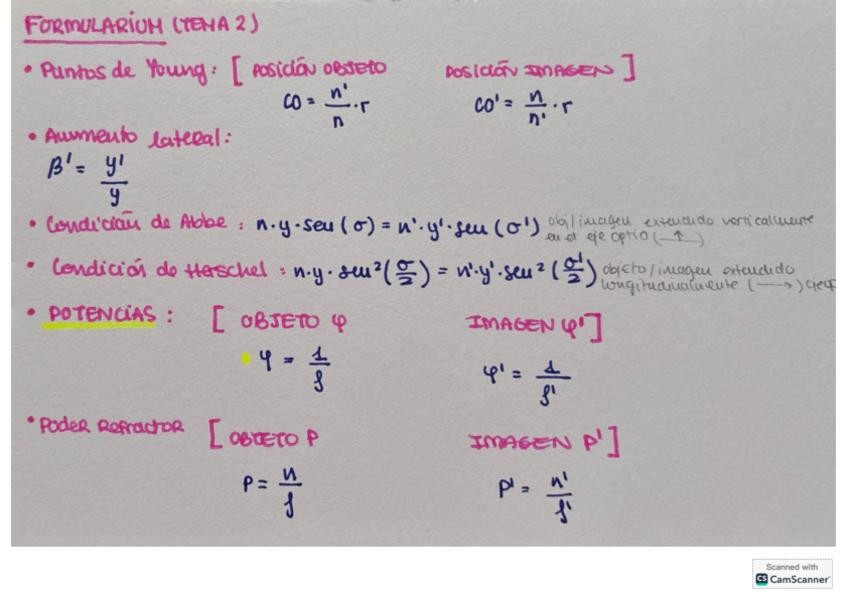 FORMULARIUM (TEMA 2)
• Puntos de Young: [ POSICIÓN OBJETO POSICIÓN IMAGEN ]
CO = n'/n · r CO' = n/n' · r
• Aumento lateral:
β' = y'/y
• Condición de Abbe : n·y·sen(σ) = n'·y'·sen(σ') obj/imagen extendido verticalmente
en el eje optio (↑)
• Condición de Herschel : n·y·sen²(σ/2) = n'·y'·sen²(σ'/2) objeto/imagen extendido
longitudinalmente (→)
• POTENCIAS : [ OBJETO φ IMAGEN φ' ]
φ = 1/f φ' = 1/f'
• Poder Refractor [ OBJETO P IMAGEN P' ]
P = n/f P' = n'/f'
Scanned with
CS CamScanner